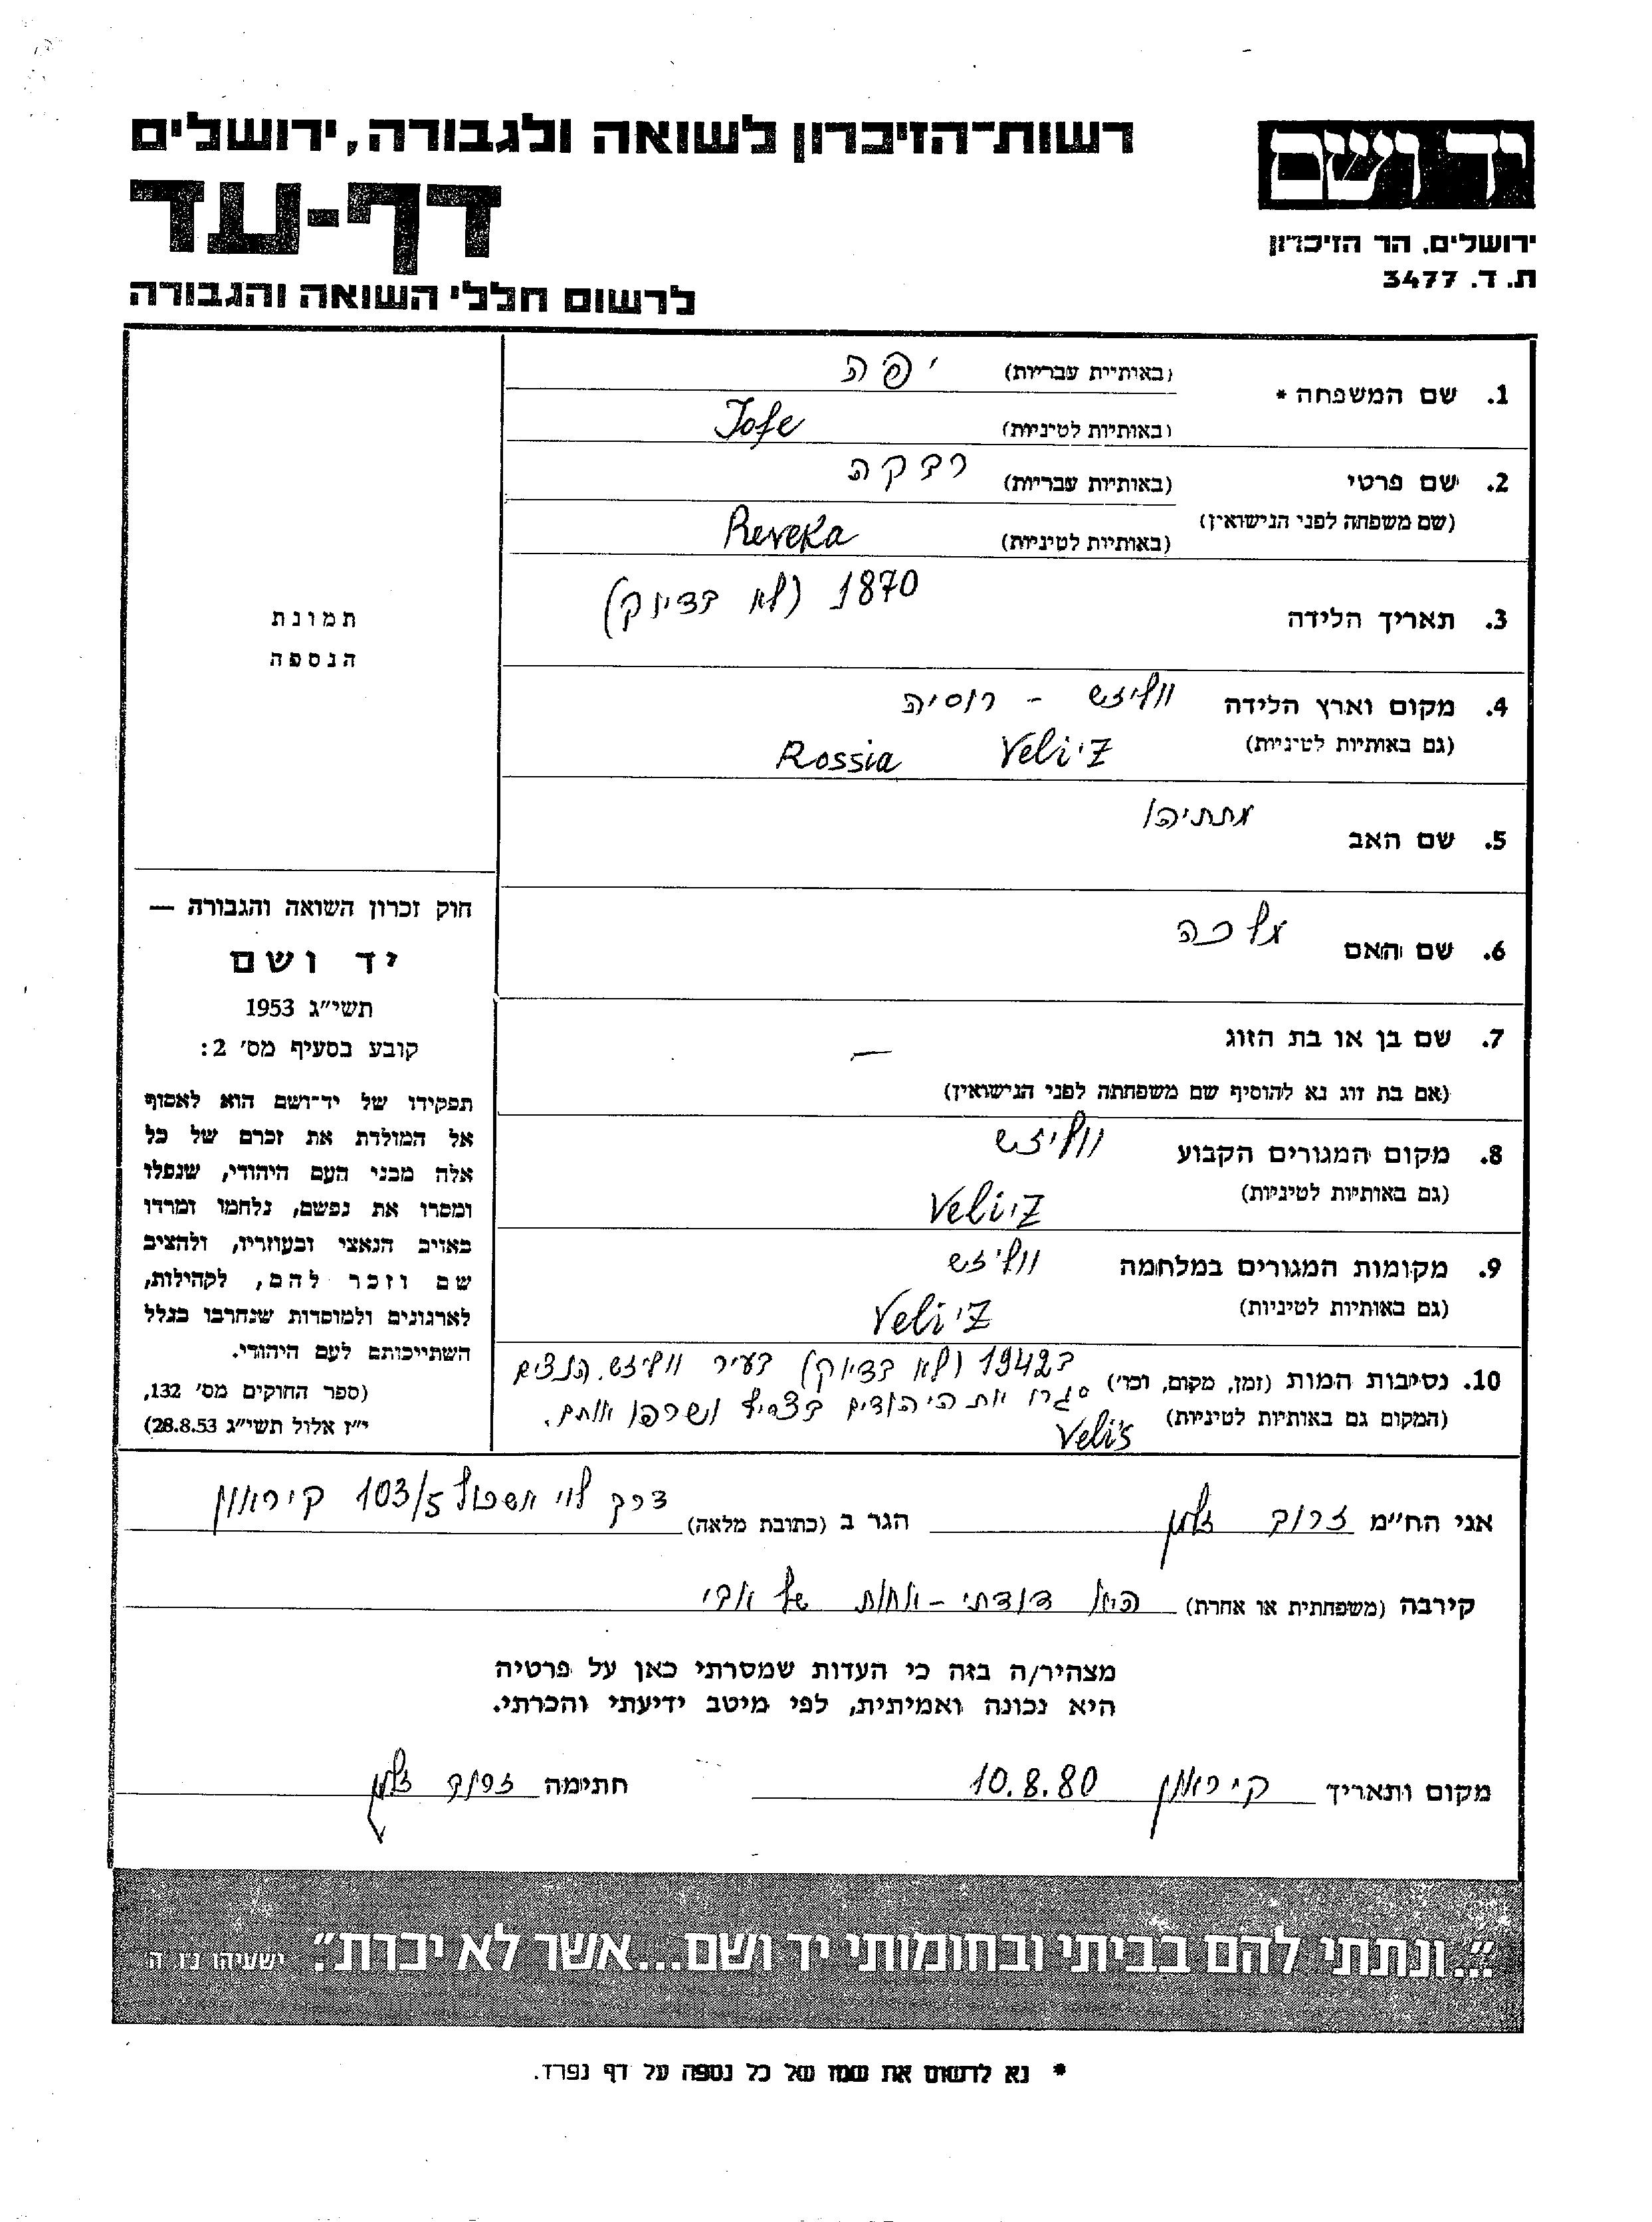 יד ושם
ירושלים, הר הזיכרון
ת. ד. 3477
רשות־הזיכרון לשואה ולגבורה, ירושלים
דף-עד
לרשום חללי השואה והגבורה
1. שם המשפחה * (באותיות עבריות) יפה
(באותיות לטיניות) Jofe
2. שם פרטי (באותיות עבריות) רבקה
(שם משפחה לפני הנישואין) (באותיות לטיניות) Reveka
3. תאריך הלידה 1870 (לא בדיוק)
4. מקום וארץ הלידה ווליזש - רוסיה
(גם באותיות לטיניות) Veli'Z Rossia
5. שם האב מתתיהו
6. שם האם מלכה
7. שם בן או בת הזוג —
(אם בת זוג נא להוסיף שם משפחתה לפני הנישואין)
8. מקום המגורים הקבוע ווליזש
(גם באותיות לטיניות) Veli'Z
9. מקומות המגורים במלחמה ווליזש
(גם באותיות לטיניות) Veli'Z
10. נסיבות המות (זמן, מקום, וכו') ב1942 (לא בדיוק) בעיר ווליזש. הנצים
(המקום גם באותיות לטיניות) סגרו את היהודים בצריף ושרפו אותם.
Veli's
תמונת
הנספה
חוק זכרון השואה והגבורה —
יד ושם
תשי"ג 1953
קובע בסעיף מס' 2:
תפקידו של יד־ושם הוא לאסוף
אל המולדת את זכרם של כל
אלה מבני העם היהודי, שנפלו
ומסרו את נפשם, נלחמו ומרדו
באויב הנאצי ובעוזריו, ולהציב
שם וזכר להם, לקהילות,
לארגונים ולמוסדות שנחרבו בגלל
השתייכותם לעם היהודי.
(ספר החוקים מס' 132,
י"ז אלול תשי"ג 28.8.53)
אני הח"מ זרוב זלמן הגר ב (כתובת מלאה) דרך לוי אשכול 103/5 ק יראון
קירבה (משפחתית או אחרת) היא דודתי - אחות של אבי
מצהיר/ה בזה כי העדות שמסרתי כאן על פרטיה
היא נכונה ואמיתית, לפי מיטב ידיעתי והכרתי.
מקום ותאריך ק יראון 10.8.80 חתימה זרוב זלמן
"...ונתתי להם בביתי ובחומותי יד ושם...אשר לא יכרת". ישעיהו נו ה
* נא לרשום את שמו של כל נספה על דף נפרד.